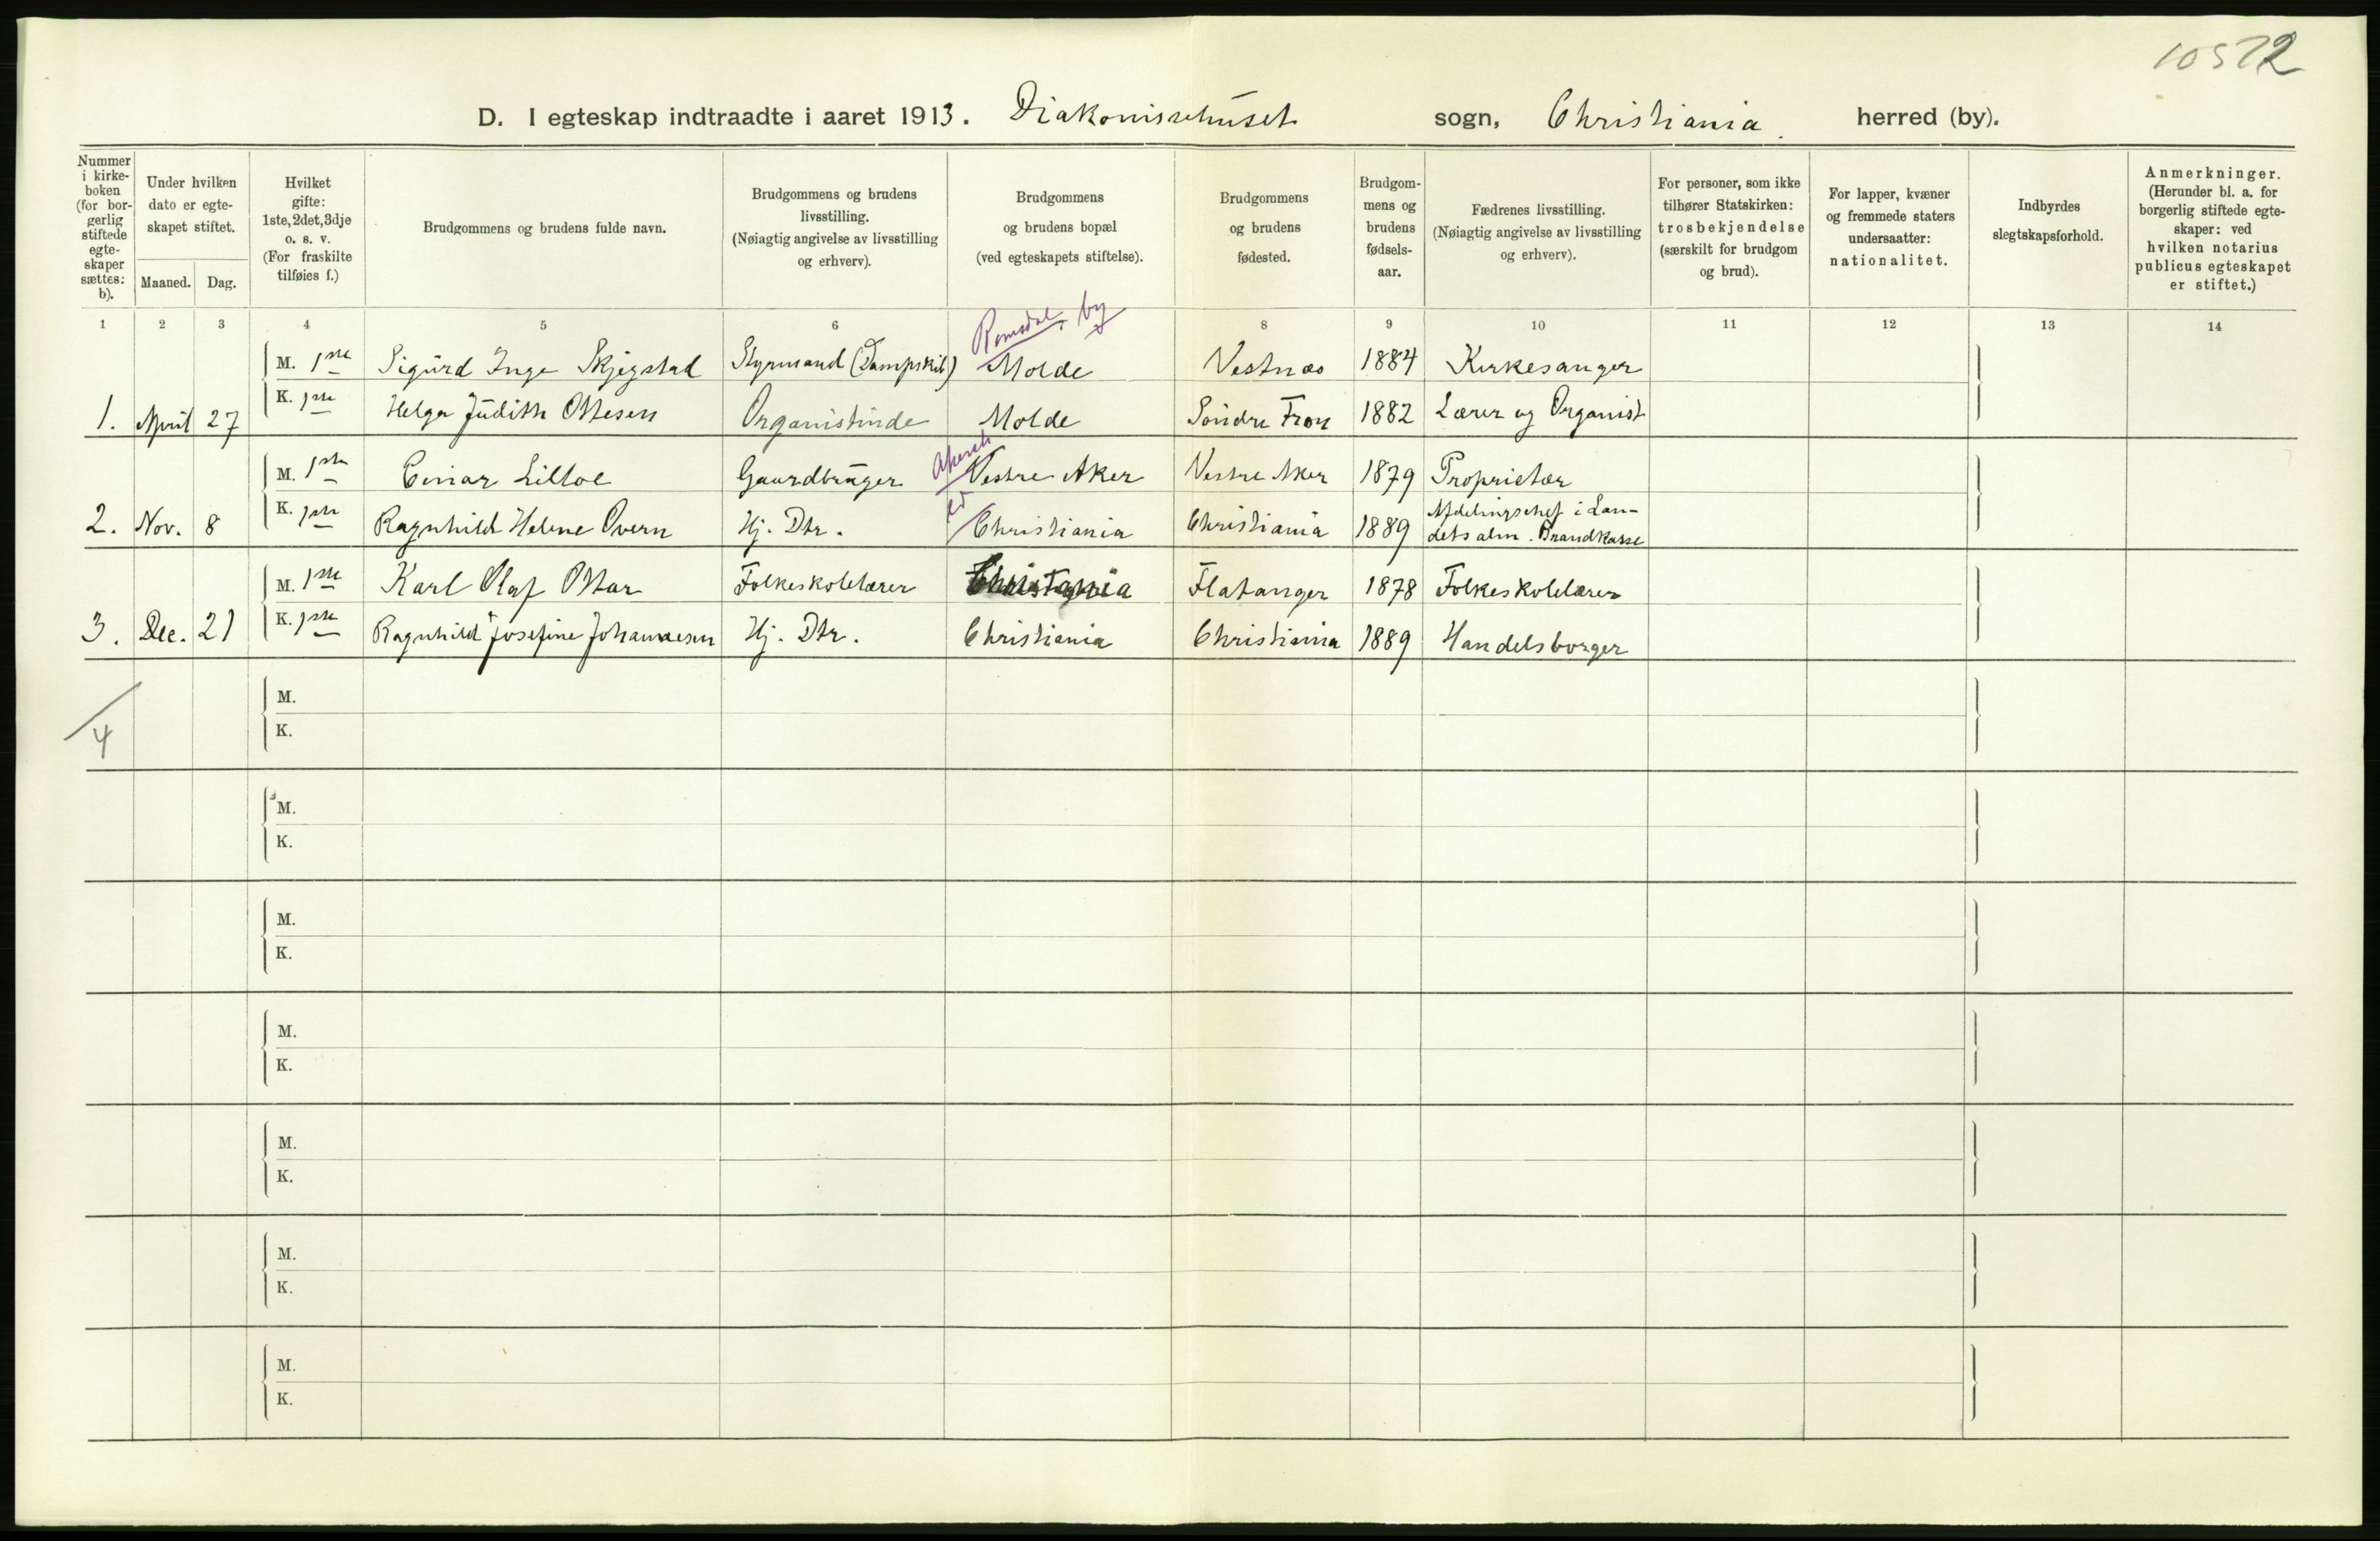 10572
D. I egteskap indtraadte i aaret 1913. Diakonissehuset sogn, Christiania. herred (by).
Nummer i kirke- boken (for bor- gerlig stiftede egte- skaper sættes: b).
Under hvilken dato er egte- skapet stiftet.
Maaned. Dag.
Hvilket gifte: 1ste, 2det, 3dje o. s. v. (For fraskilte tilføies f.)
Brudgommens og brudens fulde navn.
Brudgommens og brudens livsstilling. (Nøiagtig angivelse av livsstilling og erhverv).
Brudgommens og brudens bopæl (ved egteskapets stiftelse).
Brudgommens og brudens fødested.
Brudgom- mens og brudens fødsels- aar.
Fædrenes livsstilling. (Nøiagtig angivelse av livsstilling og erhverv).
For personer, som ikke tilhører Statskirken: trosbekjendelse (særskilt for brudgom og brud).
For lapper, kvæner og fremmede staters undersaatter: nationalitet.
Indbyrdes slegtskapsforhold.
Anmerkninger. (Herunder bl. a. for borgerlig stiftede egte- skaper: ved hvilken notarius publicus egteskapet er stiftet.)
1 2 3 4 5 6 8 9 10 11 12 13 14
Romsdal. by
M. 1ste Sigurd Inge Skjegstad Styrmand (Dampskib) Molde Vestnæs 1884 Kirkesanger
1. April 27 K. 1ste Helga Judith Ottesen Organistinde Molde Søndre Fron 1882 Lærer og Organist
Akersh
M. 1ste Einar Lilloe Gaardbruger Vestre Aker Vestre Aker 1879 Proprietær
2. Nov. 8 K. 1ste Ragnhild Helene Overn Hj. Dtr. Christiania Christiania 1889 Afdelingschef i Lan-
dets alm. Brandkasse
M. 1ste Karl Olaf Ottar Folkeskolelærer Christiania Flatanger 1878 Folkeskolelærer
3. Dec. 21 K. 1ste Ragnhild Josefine Johannesen Hj. Dtr. Christiania Christiania 1889 Handelsborger
M.
4 K.
M.
K.
M.
K.
M.
K.
M.
K.
M.
K.
M.
K.